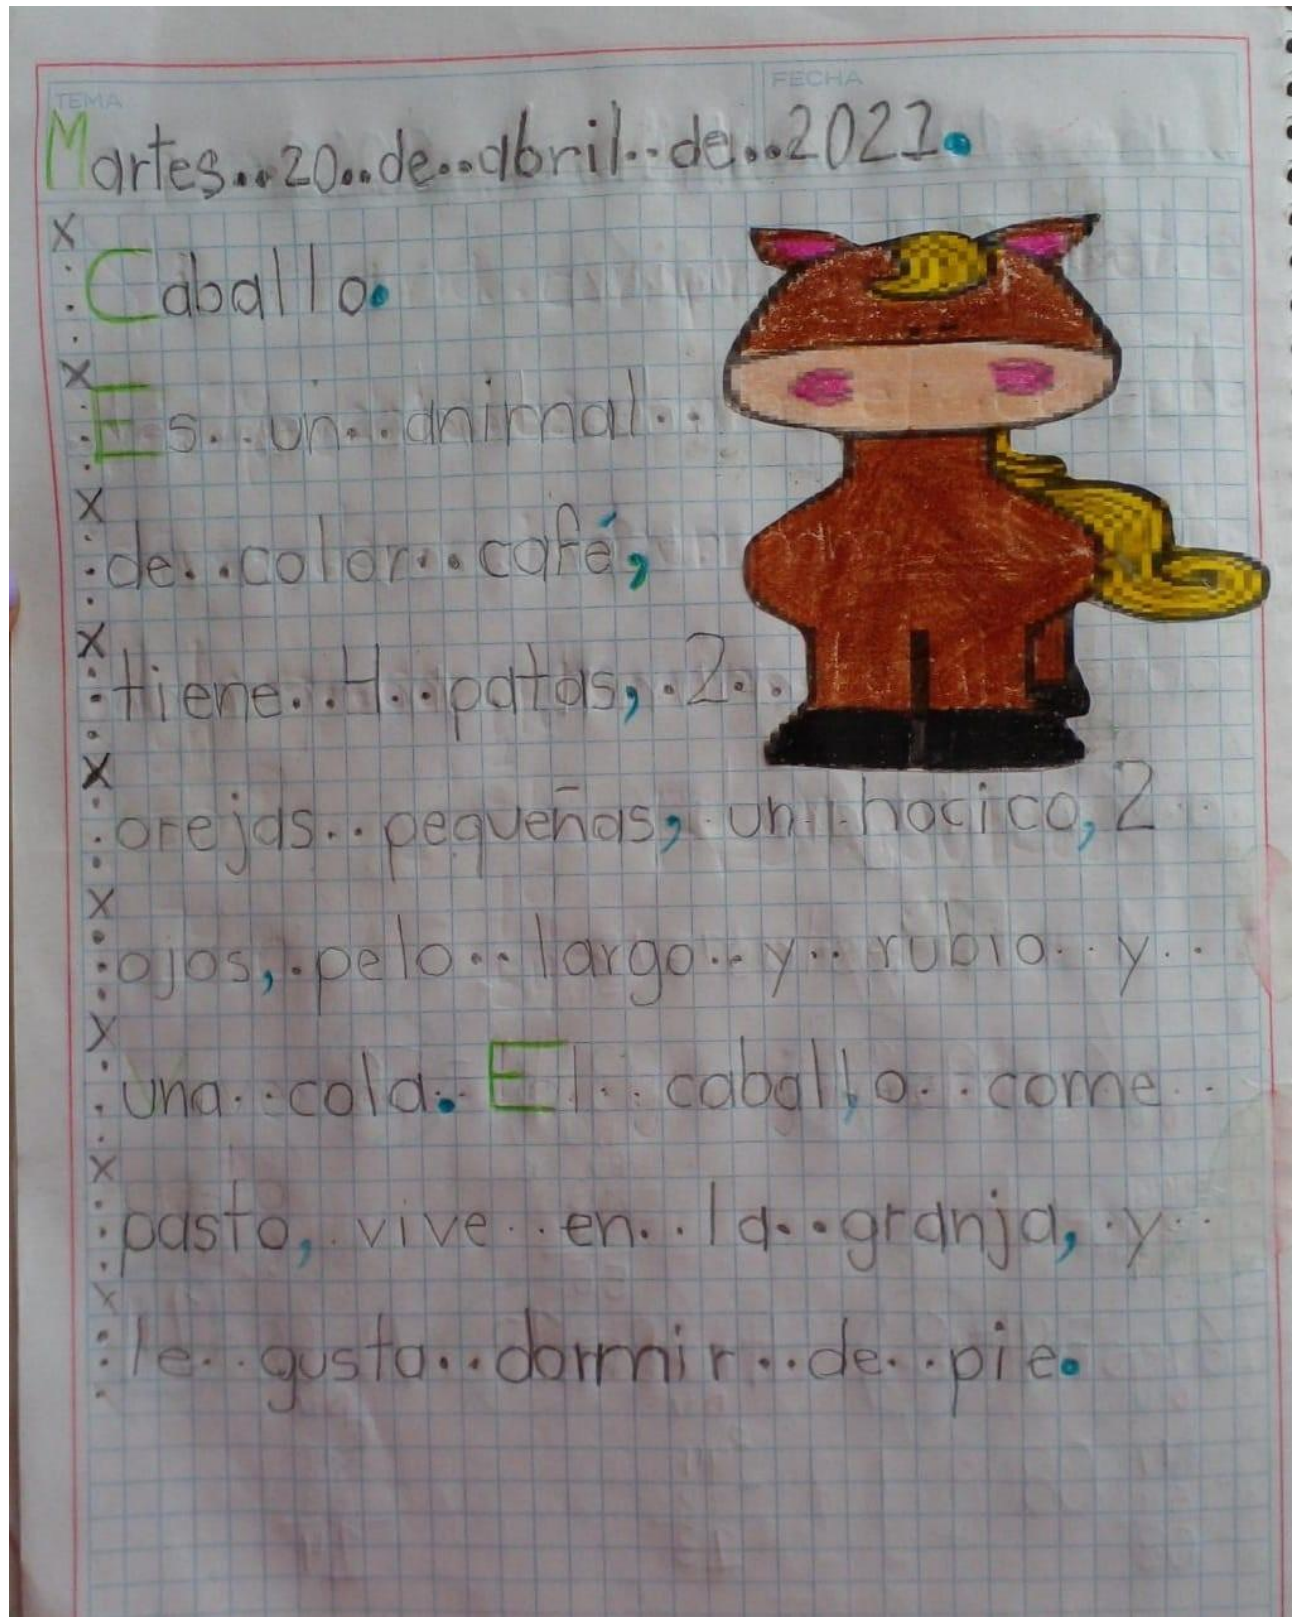 TEMA
FECHA
Martes..20..de..abril..de..2021.
Caballo.
Es..un..animal..
de..color..café,
tiene..4..patas,.2..
orejas..pequeñas,.un..hocico,2..
ojos,.pelo..largo..y..rubio..y..
una..cola. El..caballo..come..
pasto,.vive..en..la..granja,.y..
le..gusta..dormir..de..pie.